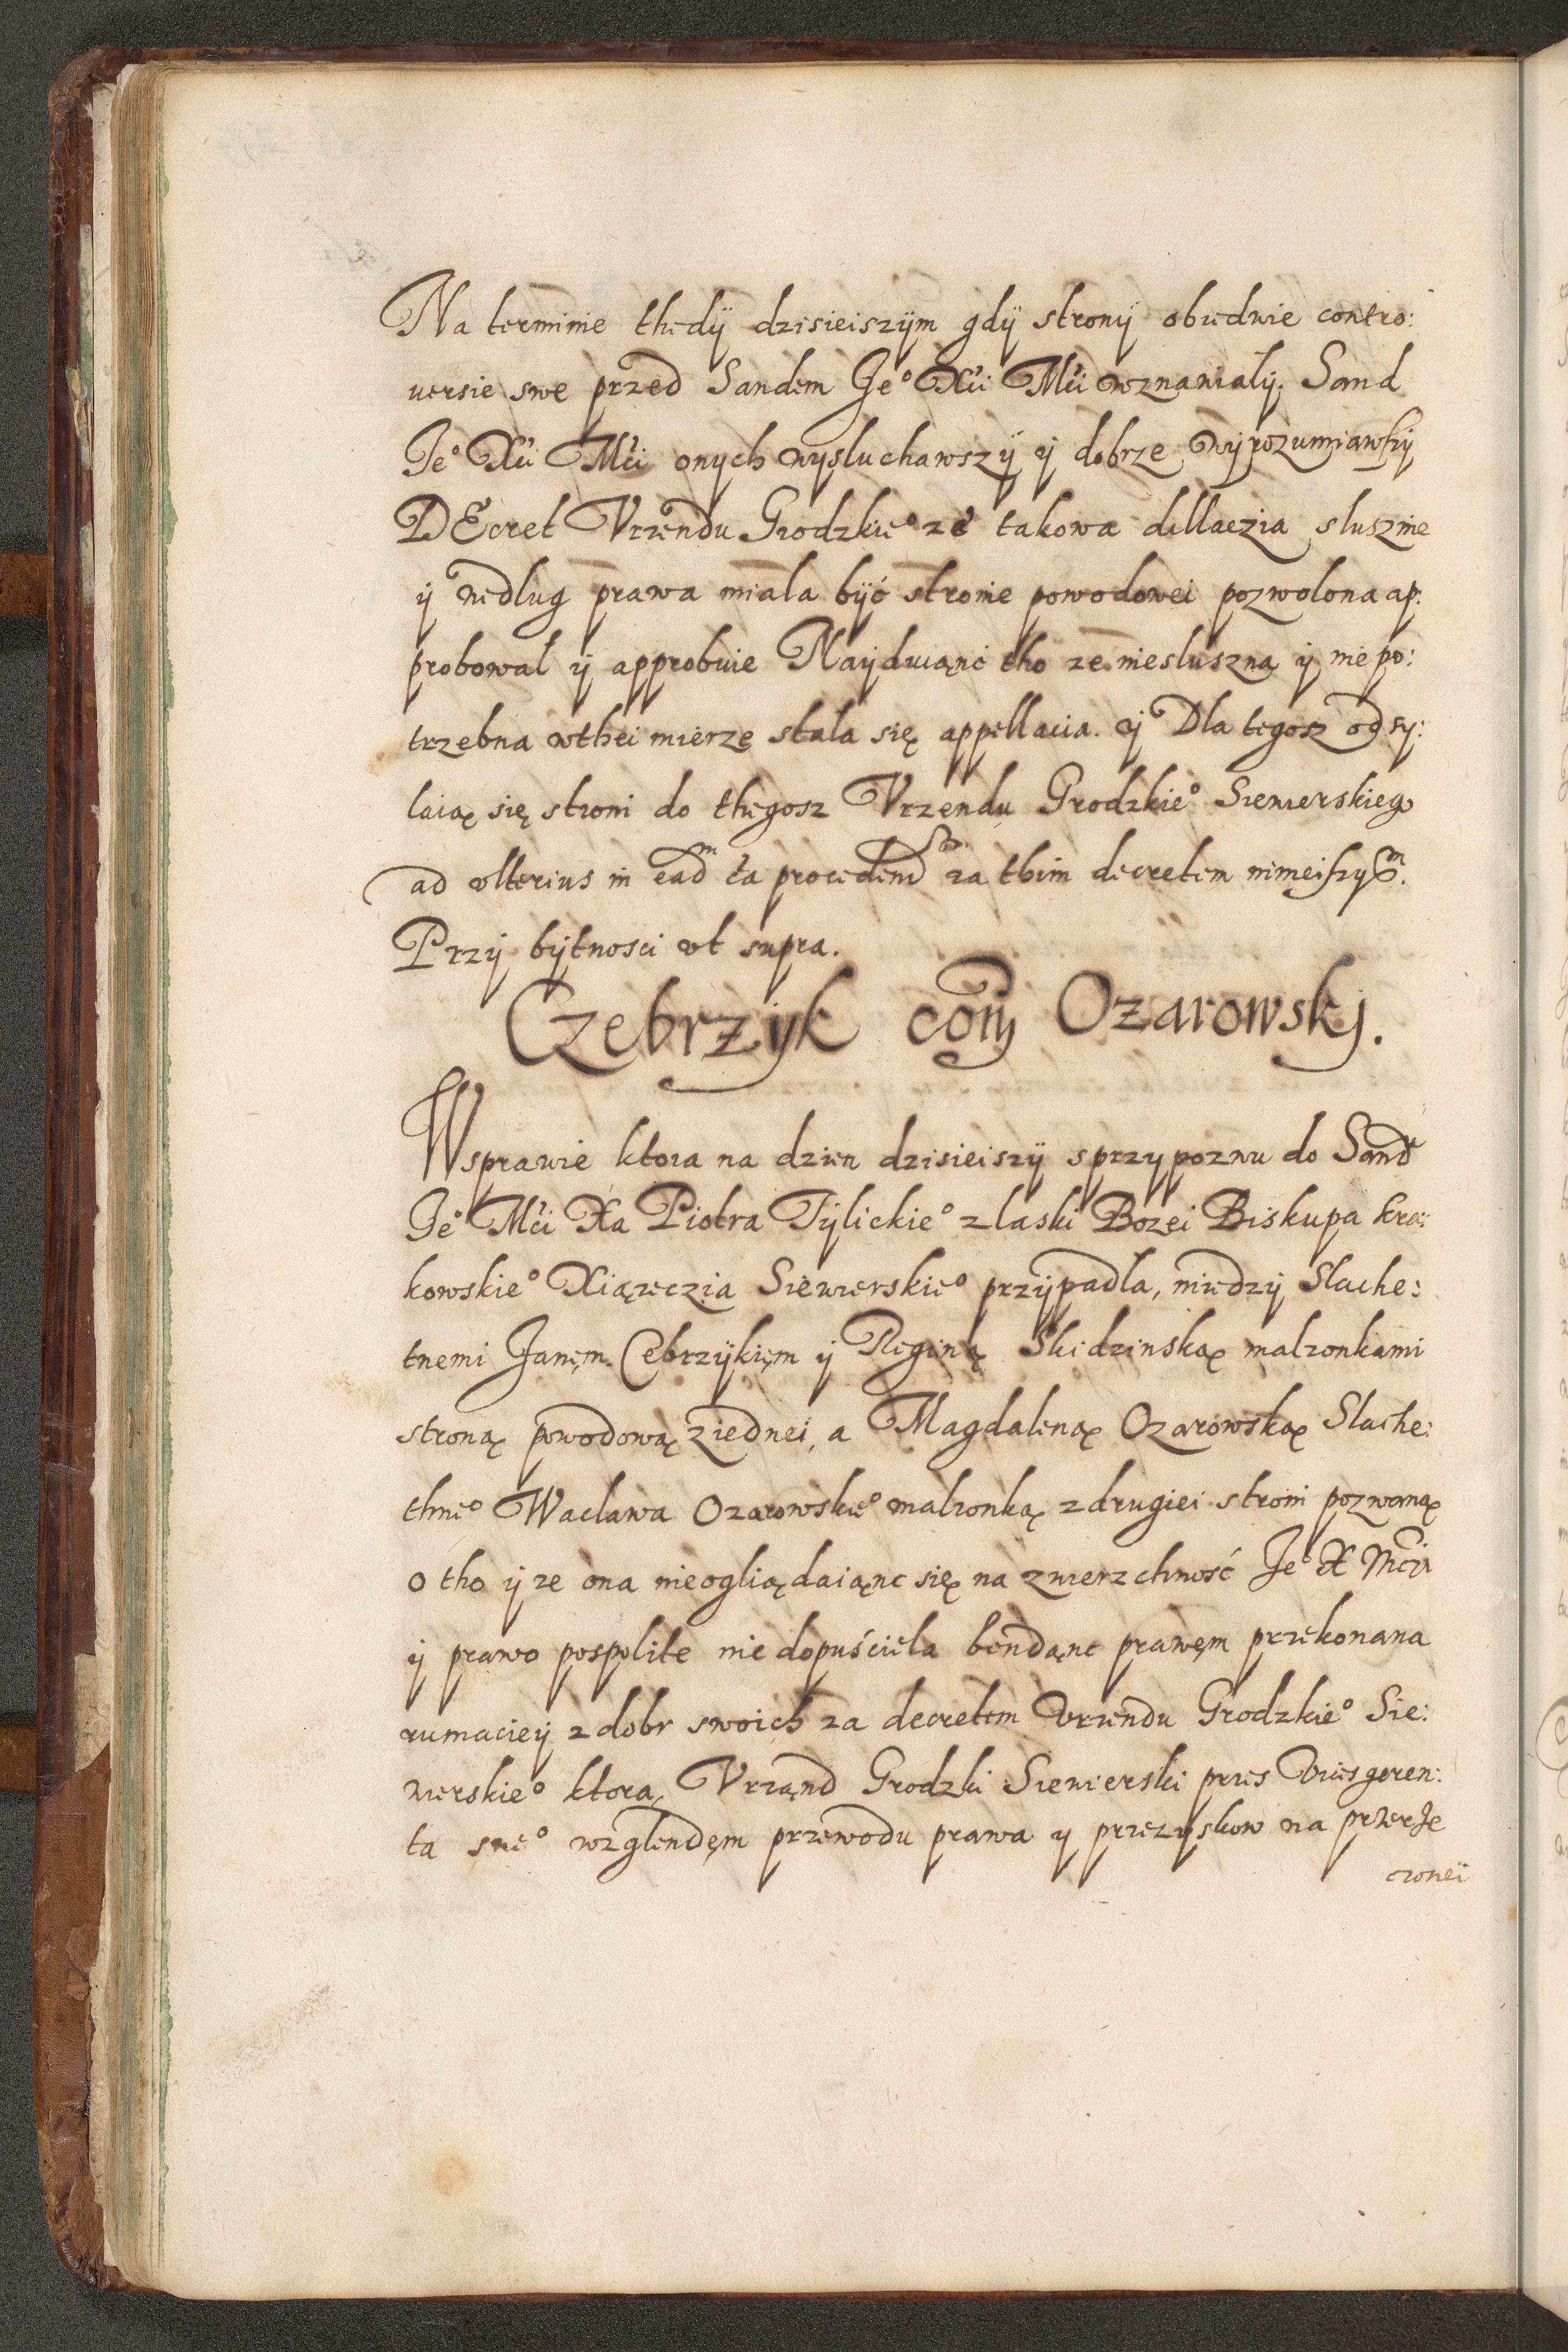 Na terminie thedÿ dzisieiszÿm gdÿ stronÿ obiedwie contro:
uersie swe przed Sandem Je° Xci Mci wznawialÿ. Sand
Je° Xci Mci onych wysluchawszÿ ÿ dobrze wÿrozumiawszÿ
DEcret Vrzendu Grodzkie° ze takowa dillaczia slusznie
ÿ wedlug prawa miala bÿć stronie powodowei pozwolona ap:
probował ÿ approbuie Naÿduiąnc tho ze niesluszna ÿ nie po:
trzebna wthei mierze stala się appellacia. ÿ Dla tegosz odsy:
laią się stroni do thegosz Vrzendu Grodzkie° Siewierskiego
ad vlterius in ead^m ca procedend za thim decretem ninieiszy^m.
Przÿ bÿtnosci vt supra.
Czebrzyk com Ozarowskj.
Wsprawie ktora na dzien dzisieiszÿ s przypozwu do Sand^u
Je° Mci Xa Piotra Tÿlickie° z laski Bozei Biskupa kra:
kowskie° Xiązeczia Siewierskie° przÿpadla, miedzÿ Slache:
tnemi Janęm Cebrzÿkięm ÿ Reginą Skidzinską malzonkami
stroną powodową z iednei, a Magdaleną Ozarowską Slache:
thne° Wacława Ozarowskie° malzonką z drugiei stroni pozwaną
o tho ÿ ze ona nieogliądaiąnc się na zwierzchność Je° X Mci
ÿ prawo pospolite nie dopuściela bendąnc prawęm przekonana
rumaciey z dobr swoich za decretem Vrzendu Grodzkie° Sie:
wierskie° ktorą Vrząnd Grodzki Siewierski przes Viesgeren:
ta swe° wzglendęm przewodu prawa y przezyskow na przerze
czonei